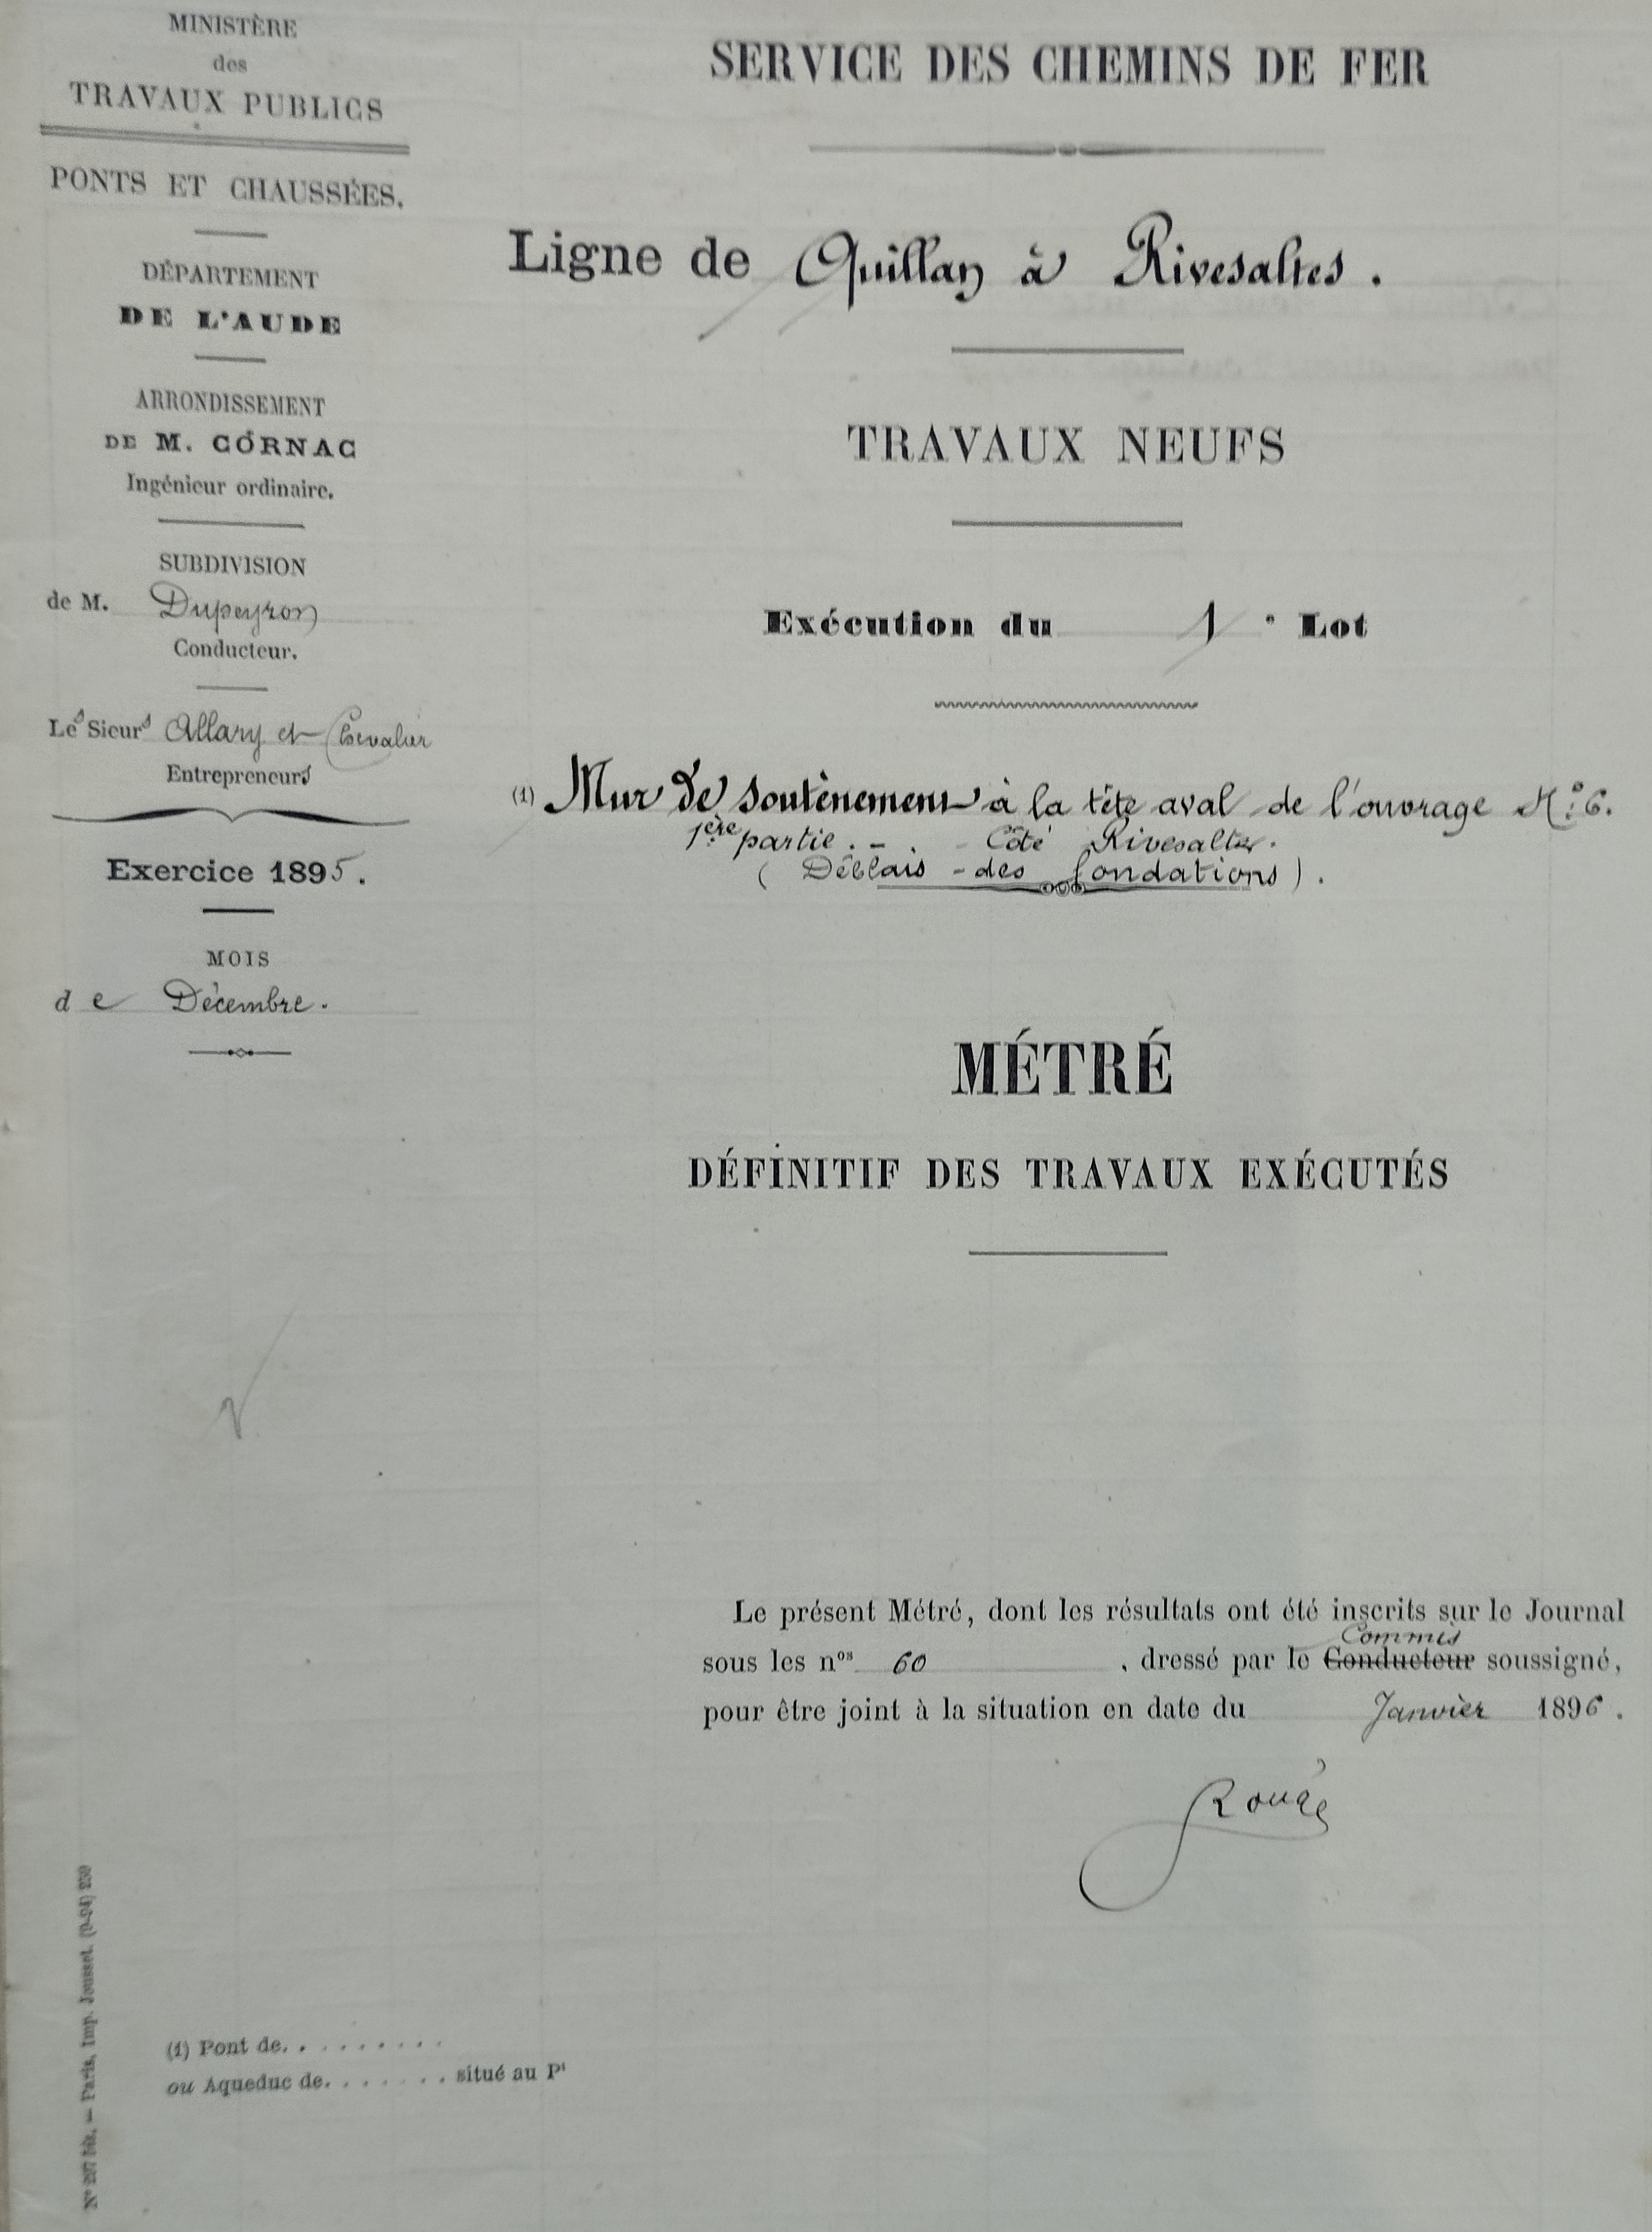 MINISTÈRE
des
TRAVAUX PUBLICS
PONTS ET CHAUSSÉES.
DÉPARTEMENT
DE L'AUDE
ARRONDISSEMENT
DE M. CORNAC
Ingénieur ordinaire.
SUBDIVISION
de M. Dupeyron
Conducteur.
Les Sieurs Allary et Chevalier
Entrepreneurs
Exercice 1895.
MOIS
de Décembre.
SERVICE DES CHEMINS DE FER
Ligne de Quillan à Rivesaltes.
TRAVAUX NEUFS
Exécution du 1e Lot
(1) Mur de soutènement à la tête aval de l'ouvrage N° 6.
1ère partie. - . Côté Rivesaltes.
(Déblais des fondations).
MÉTRÉ
DÉFINITIF DES TRAVAUX EXÉCUTÉS
Le présent Métré, dont les résultats ont été inscrits sur le Journal
Commis
sous les nos 60 , dressé par le Conducteur soussigné,
pour être joint à la situation en date du Janvier 1896.
(1) Pont de. . . . . . . . .
ou Aqueduc de. . . . . . . situé au Pt
N° 297 bis. — Paris, Imp. Jousset. (9-94) 230